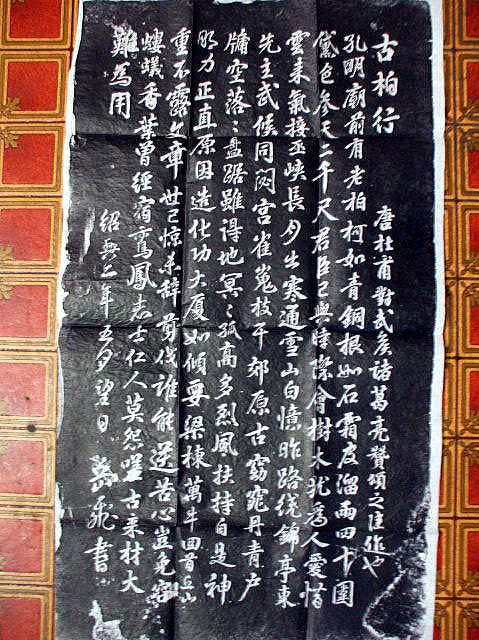 古柏行
唐杜甫對武矦諸葛亮贊頌之佳作也
孔明廟前有老柏柯如青銅根如石霜皮溜雨四十圍
黛色參天二千尺君臣已與時際會樹木猶為人愛惜
雲來氣接巫峽長月出寒通雪山白憶昨路繞錦亭東
先主武候同閟宮崔嵬枝干郊原古窈窕丹青戶
牖空落〻盤踞雖得地冥〻孤高多烈風扶持自是神
明力正直原因造化功大厦如傾要梁棟萬牛回首丘山
重不露文章世已惊未辭剪伐誰能送苦心豈免容
螻蟻香葉曾經宿鸞鳳志士仁人莫怨嗟古來材大
難為用
紹興二年五月望日 岳飛書